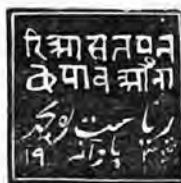 रिआसतपुंन
छ पाव आंना
ریاست پونچھ
پاوآنہ